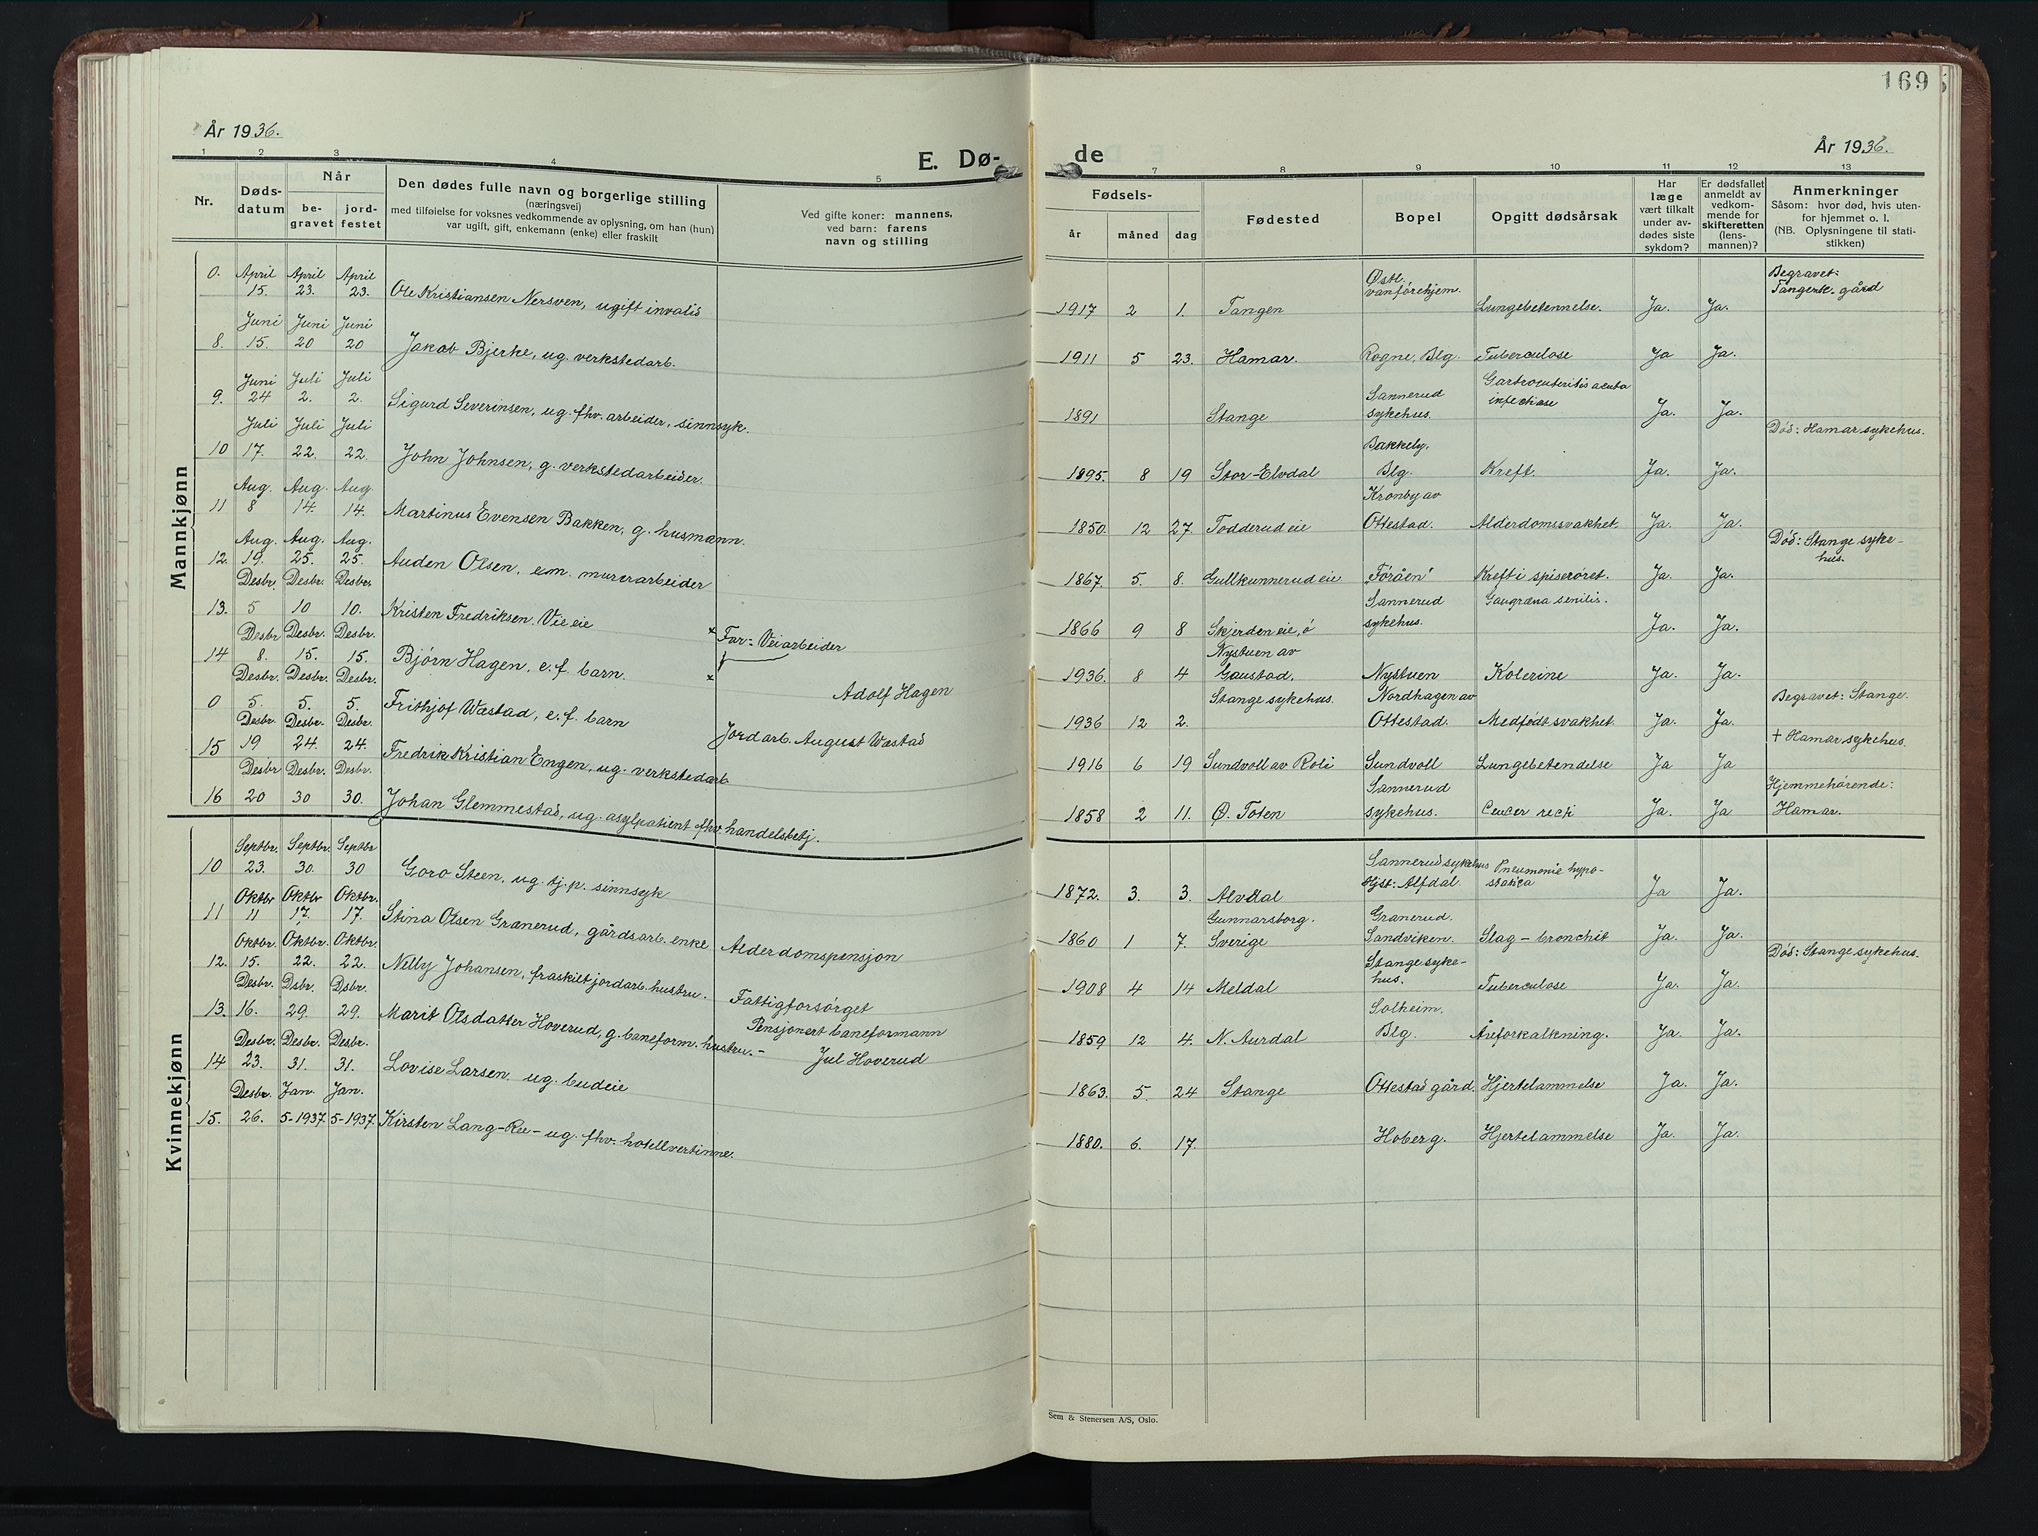 169
År 1936.
År 1936.
E. Dø- de
1 2 3 4 5 7 8 9 10 11 12 13
Nr.
Døds-
datum
Når
be-
gravet
jord-
festet
Den dødes fulle navn og borgerlige stilling
(næringsvei)
med tilføielse for voksnes vedkommende av oplysning, om han (hun)
var ugift, gift, enkemann (enke) eller fraskilt
Ved gifte koner: mannens,
ved barn: farens
navn og stilling
Fødsels-
år måned dag
Fødested
Bopel
Opgitt dødsårsak
Har
læge
vært tilkalt
under av-
dødes siste
sykdom?
Er dødsfallet
anmeldt av
vedkom-
mende for
skifteretten
(lens-
mannen)?
Anmerkninger
Såsom: hvor død, hvis uten-
for hjemmet o. l.
(NB. Oplysningene til stati-
stikken)
Mannkjønn
0. April 15. April 23. April 23. Ole Kristiansen Nersven, ugift invalid 1917 2 1. Tangen Østl. vanførehjem. Lungebetennelse. Ja. Ja. Begravet: Tangenk. gård
8. Juni 15. Juni 20 Juni 20 Jakob Bjerke, ug. verkstedarb. 1911 5 23. Hamar. Rogne, Blg. Tuberculose Ja Ja.
9. Juni 24 Juli 2. Juli 2. Sigurd Severinsen, ug. fhv. arbeider, sinnsyk. 1891 Stange Sannerud sykehus. Gastroenteritis acuta infectiose Ja. Ja.
10 Juli 17. Juli 22. Juli 22. John Johnsen, g. verkstedarbeider. 1895. 8 19 Stor-Elvdal Bakkeby. Blg. Kreft. Ja. Ja. Død: Hamar sykehus.
11 Aug. 8 Aug. 14. Aug 14. Martinus Evensen Bakken, g. husmann. 1850. 12 27. Todderud eie Kronby av Ottestad. Alderdomssvakhet. Ja. Ja.
12. Aug. 19. Aug. 25. Aug. 25. Auden Olsen, e.m. murerarbeider 1867. 5. 8. Gullkunnerud eie Føråen Kreft i spiserøret. Ja. Ja. Død: Stange sykehus.
13. Desbr. 5 Desbr. 10 Desbr. 10. Kristen Fredriksen. Vie eie 1866 9 8 Skjerden eie, ö Sannerud sykehus. Gangræna senilis. Ja. Ja.
14 Desbr 8. Desbr. 15. Desbr. 15. Bjørn Hagen, e.f. barn. Far: Veiarbeider Adolf Hagen 1936. 8 4 Nystuen av Gaustad. Nystuen Kolerine Ja. Ja.
0 Desbr. 5. Desbr. 5. Desbr. 5. Frithjof Wæstad, e.f. barn Jordarb. August Wæstad 1936 12 2. Stange sykehus. Nordhagen av Ottestad. Medfødt svakhet. Ja. Ja Begravet: Stange.
15 Desbr. 19 Desbr. 24. Desbr. 24. Fredrik Kristian Engen, ug. verkstedarb 1916 6 19 Sundvoll av Roli Sundvoll Lungebetendelse Ja Ja + Hamar sykehus.
16 Desbr 20 Desbr. 30 Desbr. 30. Johan Glemmestad, ug. asylpatient fhv. handelsbetj. 1858 2 11. Ø. Toten Sannerud sykehus. Cancer recti Ja. Ja Hjemmehørende: Hamar.
Kvinnekjønn
10 Septbr. 23. Septbr. 30. Septbr 30 Goro Steen, ug. tj.p. sinnsyk 1872. 3. 3. Alvdal Sannerud sykehus Hjst: Alfdal. Pneumonie hypostatica Ja Ja.
11 Oktbr 11 Oktbr 17. Oktbr 17. Stina Olsen Granerud, gårdsarb. enke Alderdomspensjon 1860 1 7. Gunnarsborg. Sverige Granerud. Sandviken. Slag - bronchit Ja. Ja.
12. Oktbr. 15. Oktbr. 22. Oktbr. 22. Nilly Johansen, fraskilt jordarb. hustru. Fattigforsørget 1908 4 14 Meldal Stange sykehus. Tuberculose Ja. Ja. Død: Stange sykehus.
13. Desbr. 16. Dsbr. 29. Dsbr. 29. Marit Olsdatter Hoverud, g. baneform. hustru. - Pensjonert baneformann Jul Hoverud 1859 12 4. N. Aurdal Solheim. Blg Åreforkalkning. Ja. Ja.
14 Desbr. 23. Desbr. 31. Desbr. 31. Lovise Larsen. ug. budeie 1863. 5. 24 Stange Ottestad gård. Hjertelammelse Ja. Ja.
15. Desbr. 26. Jan. 5-1937. Jan. 5-1937. Kirsten Lang-Ree - ug. fhv. hotellvertinne. 1880. 6. 17. Hoberg. Hjertelammelse Ja. Ja.
Sem & Stenersen A/S, Oslo.